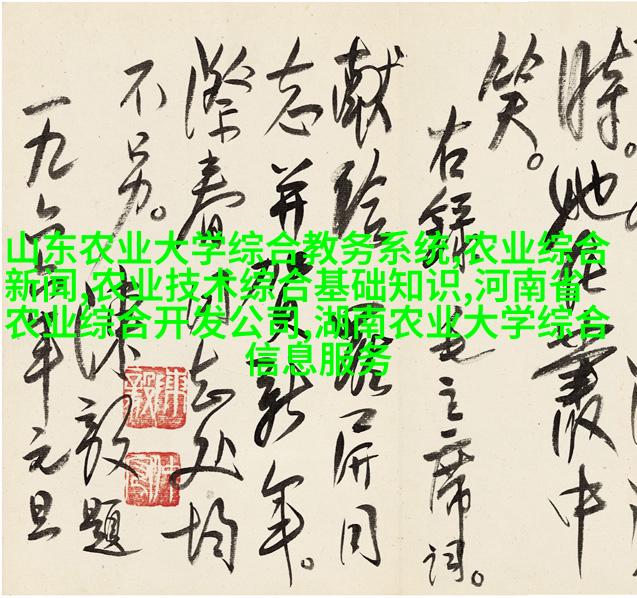 時。她在叢中
笑。
右錄毛主席词。
献给 羅屏同
志并賀新年。
際春同志处均
不另。
陳毅題
一九六年元旦
陳毅
山东农业大学综合教务系统,农业综合
新闻,农业技术综合基础知识,河南省
农业综合开发公司,湖南农业大学综合
信息服务